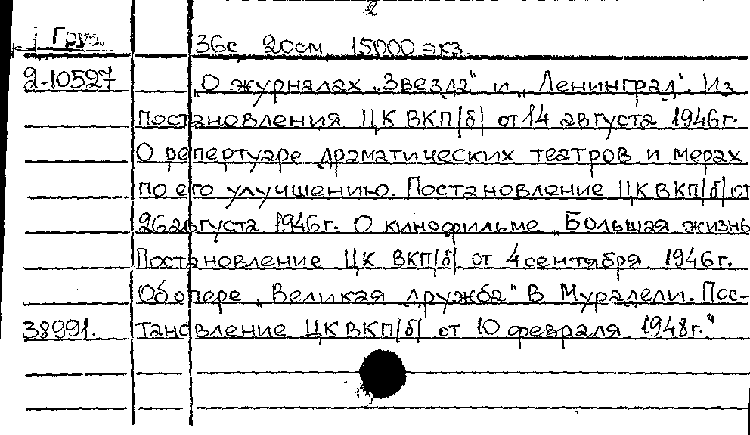 2
Груз. 36с. 20см. 15000 экз.
2-10527 „О журналах „Звезда" и „Ленинград". Из
Постановления ЦК ВКП/б/ от 14 августа 1946г.
О репертуаре драматических театров и мерах
по его улучшению. Постановление ЦК ВКП/б/ от
26 августа 1946г. О кинофильме „Большая жизнь
Постановление ЦК ВКП/б/ от 4 сентября 1946г.
Об опере „Великая дружба" В Мурадели. Пос-
38991. тановление ЦК ВКП/б/ от 10 февраля 1948г."